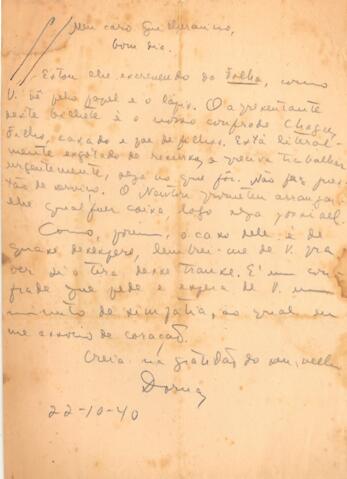 Meu caro Guilhermino,
bom dia.
Estou lhe escrevendo da Folha, como
V. vê pelo papel e o lápis. O apresentante
deste bilhete é o nosso confrade Chagas
Filho, casado e pae de filhos. Está literal-
mente esgotado de recursos e precisa trabalhar
urgentemente, seja no que fôr. Não faz ques-
tão de serviço. O Newton prometeu arranjar-
lhe qualquer coisa, logo seja possivel.
Como, porem, o caso dele é de
quase desespero, lembrei-me de V. pra
ver si o tira desse transe. E' um con-
frade que pede e espera de V. um
minuto de simpatia, ao qual eu
me associo de coração.
Creia na gratidão do seu, velho
22-10-40